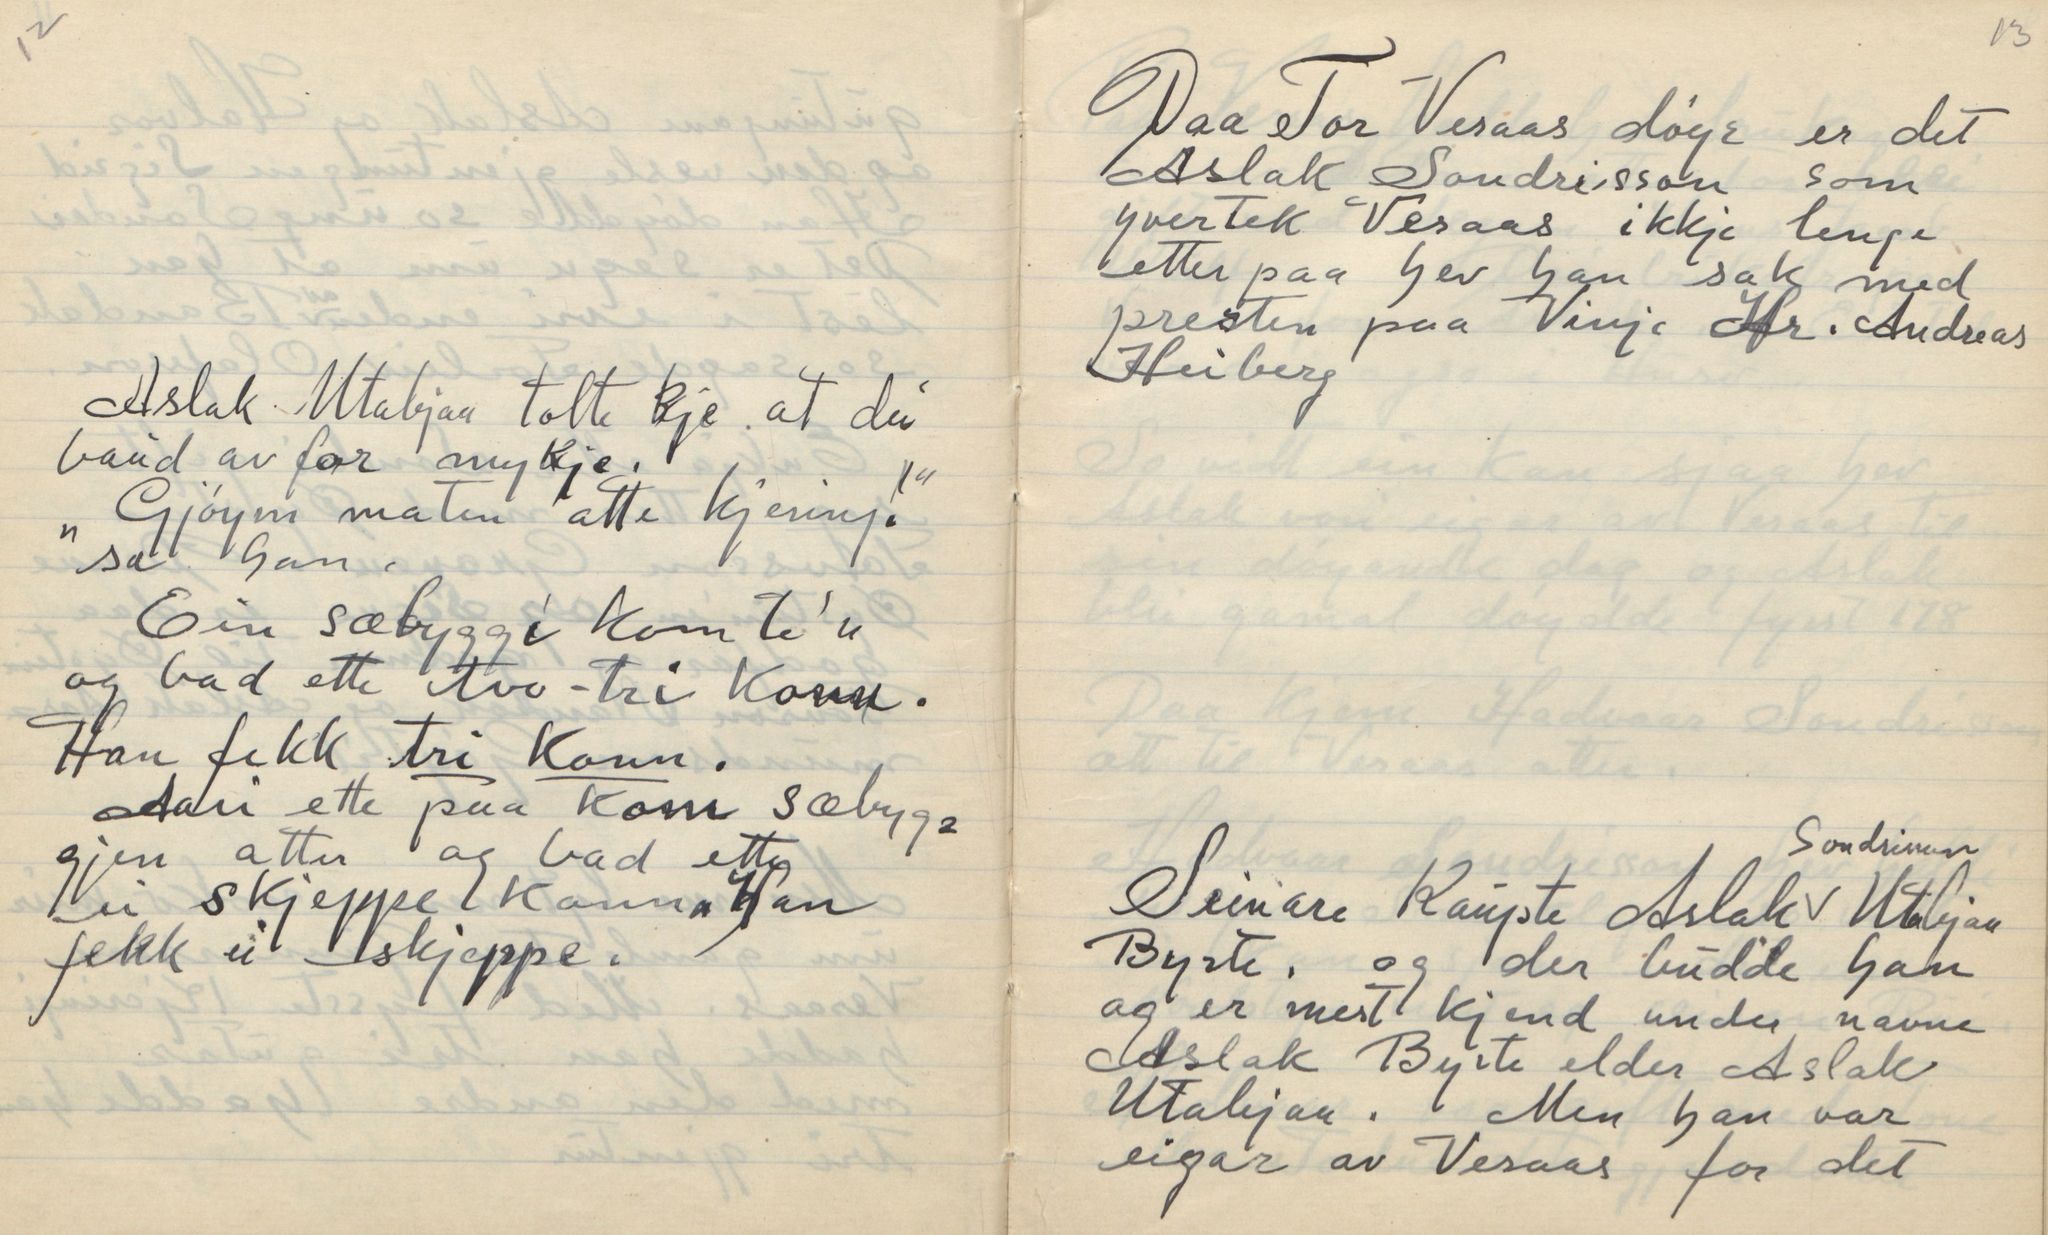 12
Aslak Utabjaa tolte kje at dei
baud av for mykje.
"Gjöym maten atte kjering!"
sa han.
Ein sæbyggi kom te'n
og bad ette tvo-tri konn.
Han fekk tri konn.
Aari ette paa kom sæbyg-
gjen atter og bad ette
ei skjeppe konn. Han
fekk ei skjeppe.
13
Daa Tor Vesaas döyr er det
Aslak Sondrisson som
yvertek Vesaas ikkje lenge
etter paa hev han sak med
presten paa Vinje Hr. Andreas
Heiberg
Sondrisson
Seinare Kaupte Aslak V Utabjaa
Byrte. og der budde han
og er mest kjend under navne
Aslak Byrte elder Aslak
Utabjaa. Men han var
eigar av Vesaas for det